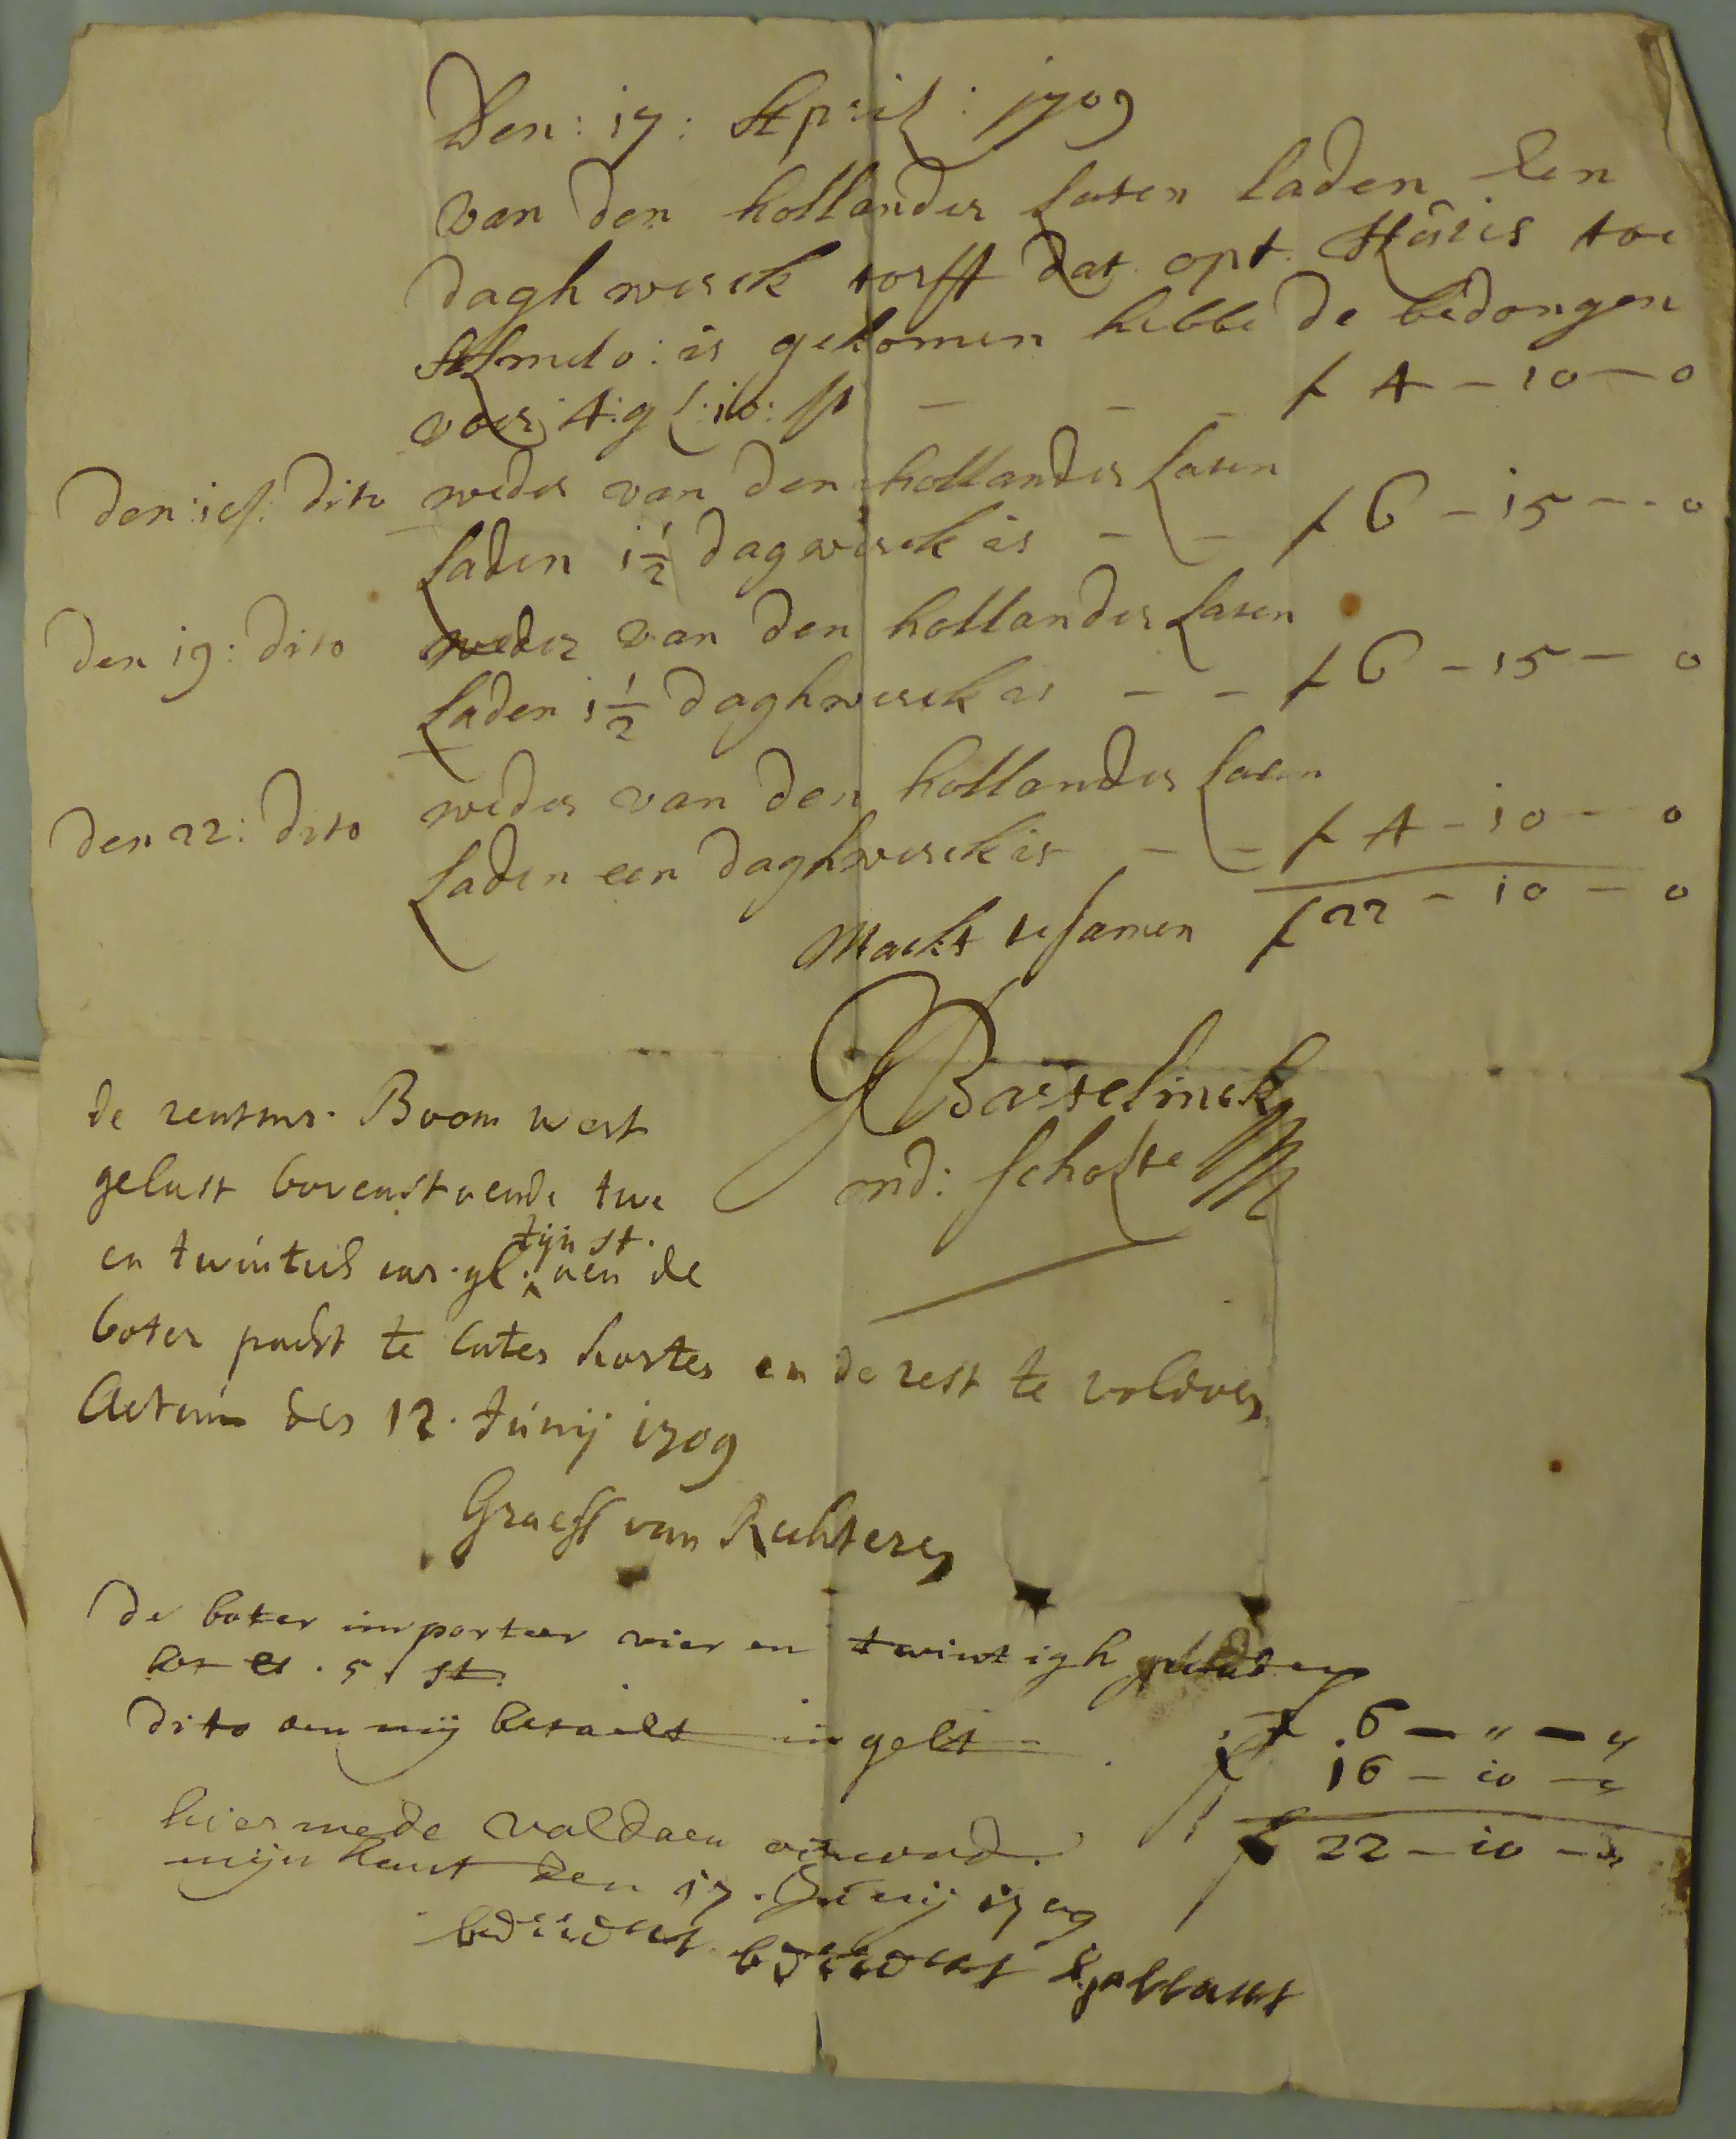 Den: 17: April: 1709
van den hollander laten laden Een
daghwerck torff dat opt Huis toe
Almelo: is gekomen hebbe de bedongen
voor 4: gl: 10: st — — — f 4 – 10 – 0
den: 18: dito weder van den hollander laten
laden 1½ dagwerck is — — f 6 – 15 – 0
den 19: dito weder van den hollander laten
laden 1½ daghwerck is — — f 6 – 15 – 0
den 22: dito weder van den hollander laten
laden een daghwerck is — — f 4 – 10 – 0
Mackt tesamen f 22 – 10 – 0
Basselinck
md: scholte
de rentmr. Boom wert
gelast bovenstaende twe
en twintich car. gl. tijn st. aen de
boter pacht te laten korten en de rest te voldoen
Actum den 12. Junij 1709
Graeff van Rechteren
De boter importeer vier en twintigh
5 st
dito aen mij betaelt in gelt
f 6 – " – "
16 – 10 – "
f 22 – 10 – "
hiermede voldaen
mijn hant den 17. Junij 1709
berent berent